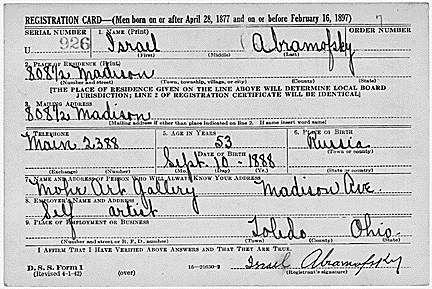 REGISTRATION CARD—(Men born on or after April 28, 1877 and on or before February 16, 1897)
SERIAL NUMBER 1. NAME (Print) ORDER NUMBER
U 926 Israel Abramofsky
(First) (Middle) (Last)
2. PLACE OF RESIDENCE (Print)
808½ Madison
(Number and street) (Town, township, village, or city) (County) (State)
[THE PLACE OF RESIDENCE GIVEN ON THE LINE ABOVE WILL DETERMINE LOCAL BOARD
JURISDICTION; LINE 2 OF REGISTRATION CERTIFICATE WILL BE IDENTICAL]
3. MAILING ADDRESS
808½ Madison
[Mailing address if other than place indicated on line 2. If same insert word same]
4. TELEPHONE 5. AGE IN YEARS 6. PLACE OF BIRTH
Main 2388 53 Russia
DATE OF BIRTH (Town or county)
Sept. 10 - 1888
(Exchange) (Number) (Mo.) (Day) (Yr.) (State or country)
7. NAME AND ADDRESS OF PERSON WHO WILL ALWAYS KNOW YOUR ADDRESS
Mohr Art Gallery Madison Ave.
8. EMPLOYER'S NAME AND ADDRESS
Self artist
9. PLACE OF EMPLOYMENT OR BUSINESS
Toledo Ohio.
(Number and street or R. F. D. number) (Town) (County) (State)
I AFFIRM THAT I HAVE VERIFIED ABOVE ANSWERS AND THAT THEY ARE TRUE.
D. S. S. Form 1
(Revised 4-1-42) (over) 16—21630-2 Israel Abramofsky
(Registrant's signature)